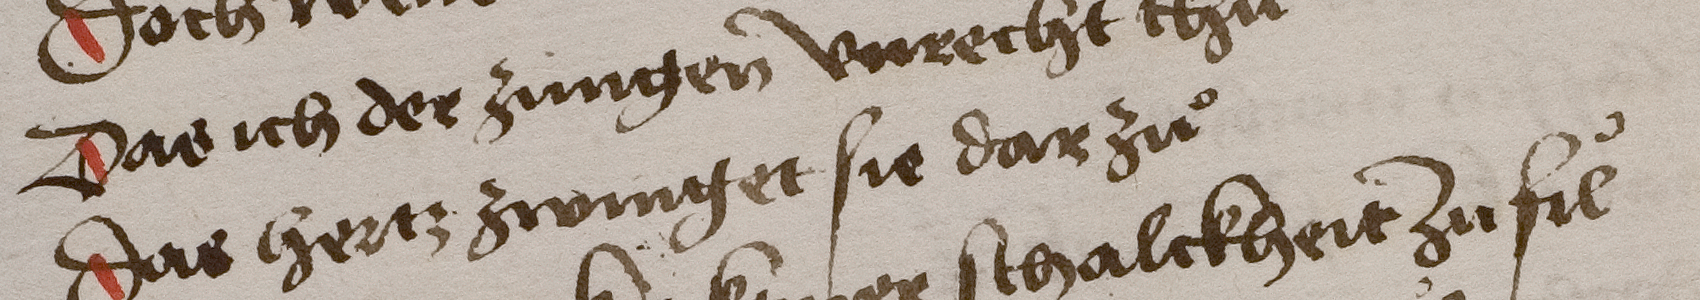 Doch
Das ich der zungen vnrecht thu
Das hertz zwinget sie dar zuͦ
schalckheit zu fil